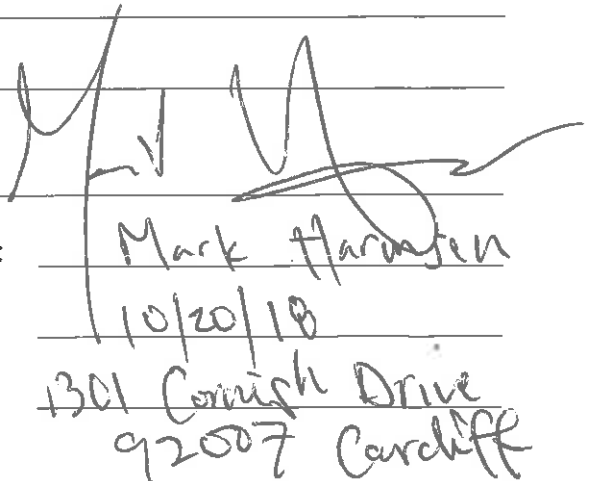 :
Mark Harmsen
10/20/18
1301 Cornish Drive
92007 Cardiff